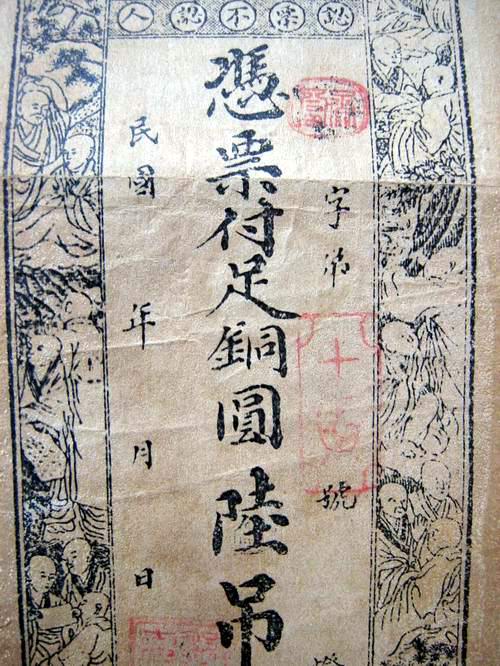 認票不認人
字第 號
憑票付足銅圓陸吊
民國 年 月 日